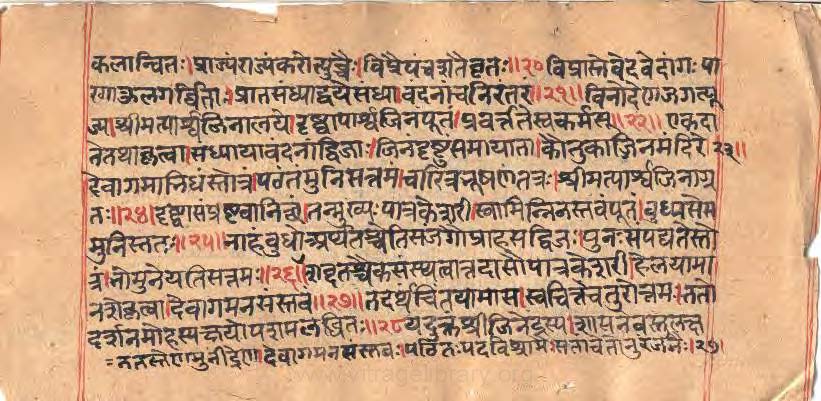 कलान्वितः।प्राज्यंराज्यंकरोत्युच्चैः।विप्रैपंचशतैर्वृतः॥२०विप्रास्तेवेदवेदांगःपा
रगाःकुलगर्विताः।प्रातसंध्याद्वयेसंध्यावंदनांचनिरंतरं॥२१॥विनोदेनजगत्पू
ज्यश्रीमत्पार्श्वजिनालये।दृष्ट्वापार्श्वजिनंपूतं।प्रवर्त्ततेस्वकर्मसु॥२२॥एकदा
तेतथाकृत्वा।संध्यायावंदनांद्विजाः।जिनंदृष्टुंसमायाता।कौतुकाज्जिनमंदिरे२३॥
देवागमाभिधंस्तोत्रं।पठंतंमुनिसत्तमं।चारित्रभूषणंतत्रः।श्रीमत्पार्श्वजिनाग्र
तः॥२४॥दृष्ट्वासंप्रष्टवानित्थं।तन्मुख्यःपात्रकेशरी।स्वामिन्निमंस्तवंपूतं।बुध्यसेस
मुनिस्ततः॥२५॥नाहंबुधोप्यर्थतश्चेतिसंजगौप्राहसद्विजः।पुनःसंपद्यतेस्तो
त्रं।भोमुनेयतिसत्तमः॥२६॥
नशेकृत्वा।देवागमनसंस्तवं॥२७॥तदर्थंचिंतयामास।स्वचित्तेचतुरोत्तमः।ततो
दर्शनमोहस्यक्षयोपशमलब्धितः॥२८यदुक्तंश्रीजिनेंद्रस्य।शासनेवस्तुलक्ष
ततस्तेणमुनींद्रेणदेवागमनसंस्तवः।पठितःपदविश्रामैःसतांचेतोनुरंजनैः।२७।
www.vitragelibrary.org